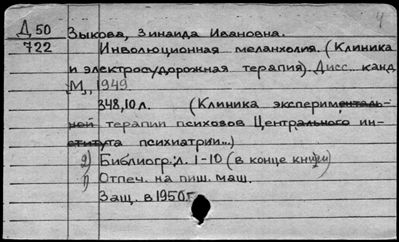 4
Д 50 Зыкова, Зинаида Ивановна.
722 Инволюционная меланхолия. (Клиника
и электросудорожная терапия). Дисс. канд
М., 1949.
348,10 л. (Клиника эксперименталь-
ной терапии психозов Центрального ин-
ститута психиатрии...)
2) Библиогр: л. 1-10 (в конце книги)
1) Отпеч. на пиш. маш.
Защ. в 1950 г.